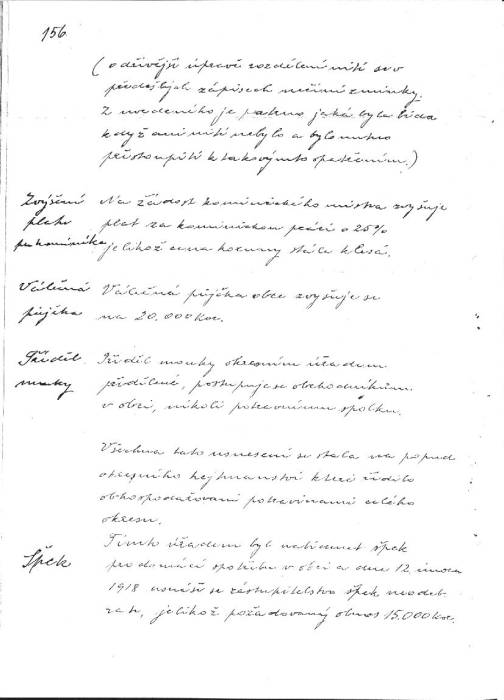 156
(o dřívější úpravě rozdělení nití se v
předešlých zápisech nečiní zmínky.
Z uvedeného je patrno jaká byla bída
když ani nití nebylo a bylo nutno
přistoupiti k takovýmto opatřením.)
Zvýšení Na žádost kominického mistra zvyšuje
platu plat za kominickou práci o 25%
pro kominíka jelikož cena koruny stále klesá.
Válečná Válečná půjčka obce zvyšuje se
půjčka na 20.000 Kor.
Příděl Příděl mouky okresním úřadem
mouky přidělené, postupuje se obchodníkům
v obci, nikoli potravnímu spolku.
Všechna tato usnesení se stala na popud
okresního hejtmanství které řídilo
obhospodařování potravinami celého
okresu.
Tímto úřadem byl nabídnut špek
Špek pro domácí spotřebu v obci a dne 12. února
1918 usnáší se zastupitelstvo špek neodeb
rati, jelikož požadovaný obnos 15.000 Kor.